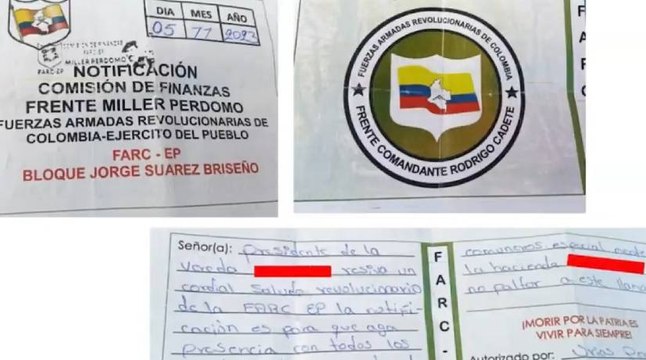 DIA MES AÑO
05 11
MILLER PERDOMO
FARC-EP
NOTIFICACIÓN
COMISIÓN DE FINANZAS
FRENTE MILLER PERDOMO
FUERZAS ARMADAS REVOLUCIONARIAS DE
COLOMBIA-EJERCITO DEL PUEBLO
FARC - EP
BLOQUE JORGE SUAREZ BRISEÑO
FUERZAS ARMADAS REVOLUCIONARIAS DE COLOMBIA
FRENTE COMANDANTE RODRIGO CADETE
F
A
R
C
Señor(a): presidente de la
Vereda resiva un
cordial Saludo revolucionario
de la FARC EP la notifi-
cación es para que aga
presencia con todos los
F
A
R
C
-
la hacienda
no paltar a este llama
¡MORIR POR LA PATRIA ES
VIVIR PARA SIEMPRE!
Autorizado por: